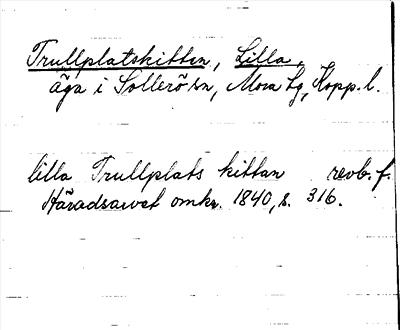 Trullplatskittan, Lilla,
äga i Sollerö sn, Mora tg, Kopp. l.
lilla Trullplats kittan revb. f.
Häradsarvet omkr. 1840, s. 316.